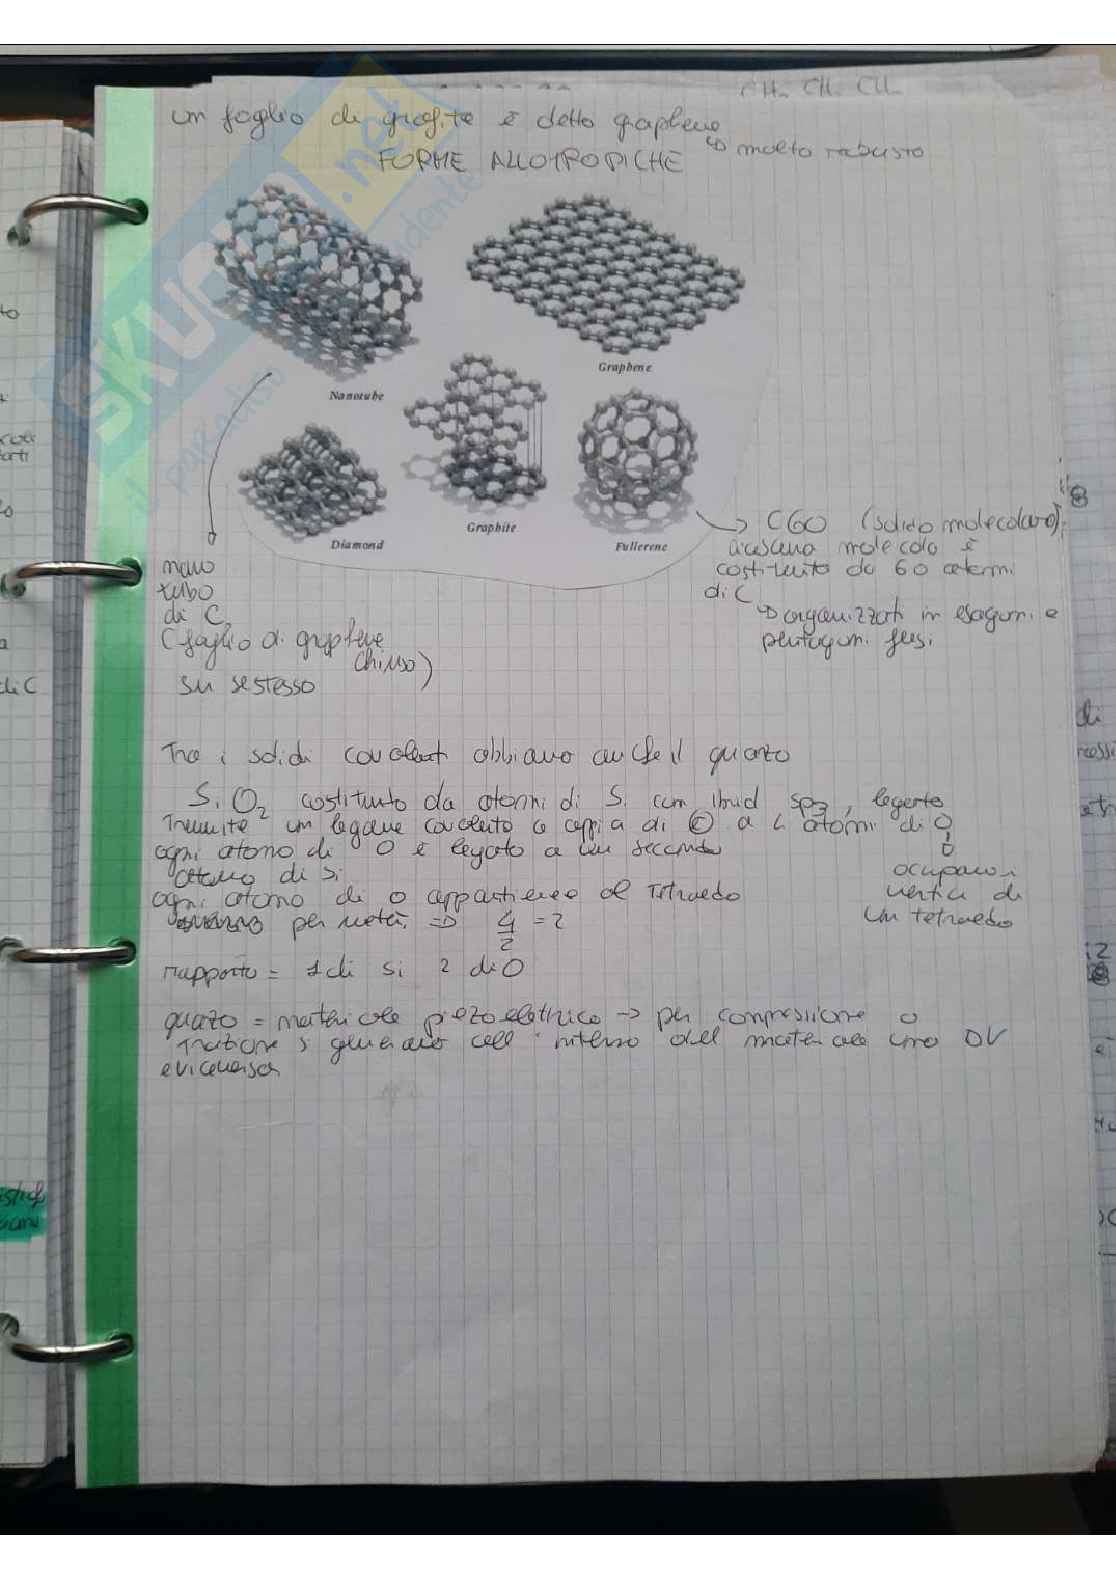 CH₂ CH₂ CH₂
un foglio di grafite è detto graphene
↳ molto robusto
FORME ALLOTROPICHE
SKUOLA.net
il paradiso dello studente
Nanotube
Graphene
Diamond
Graphite
Fullerene
→ C60 (solido molecolare):
ciascuna molecola è
costituita da 60 atomi
di C
↳ organizzati in esagoni e
pentagoni fusi
nano
tubo
di C
(foglio di graphene
chiuso)
su se stesso
Tra i solidi covalenti abbiamo anche il quarzo
SiO₂ costituito da atomi di Si con ibrid sp3, legato
Tramite un legame covalente a coppia di e a 4 atomi di O
ogni atomo di O è legato a un secondo
atomo di Si
occupano i
vertici di
un tetraedro
ogni atomo di O appartiene al Tetraedo
per metà. => 4/2 = 2
rapporto = 1 di Si 2 di O
quarzo = materiale piezoelettrico → per compressione o
trazione si generano all'interno del materiale una DV
e viceversa